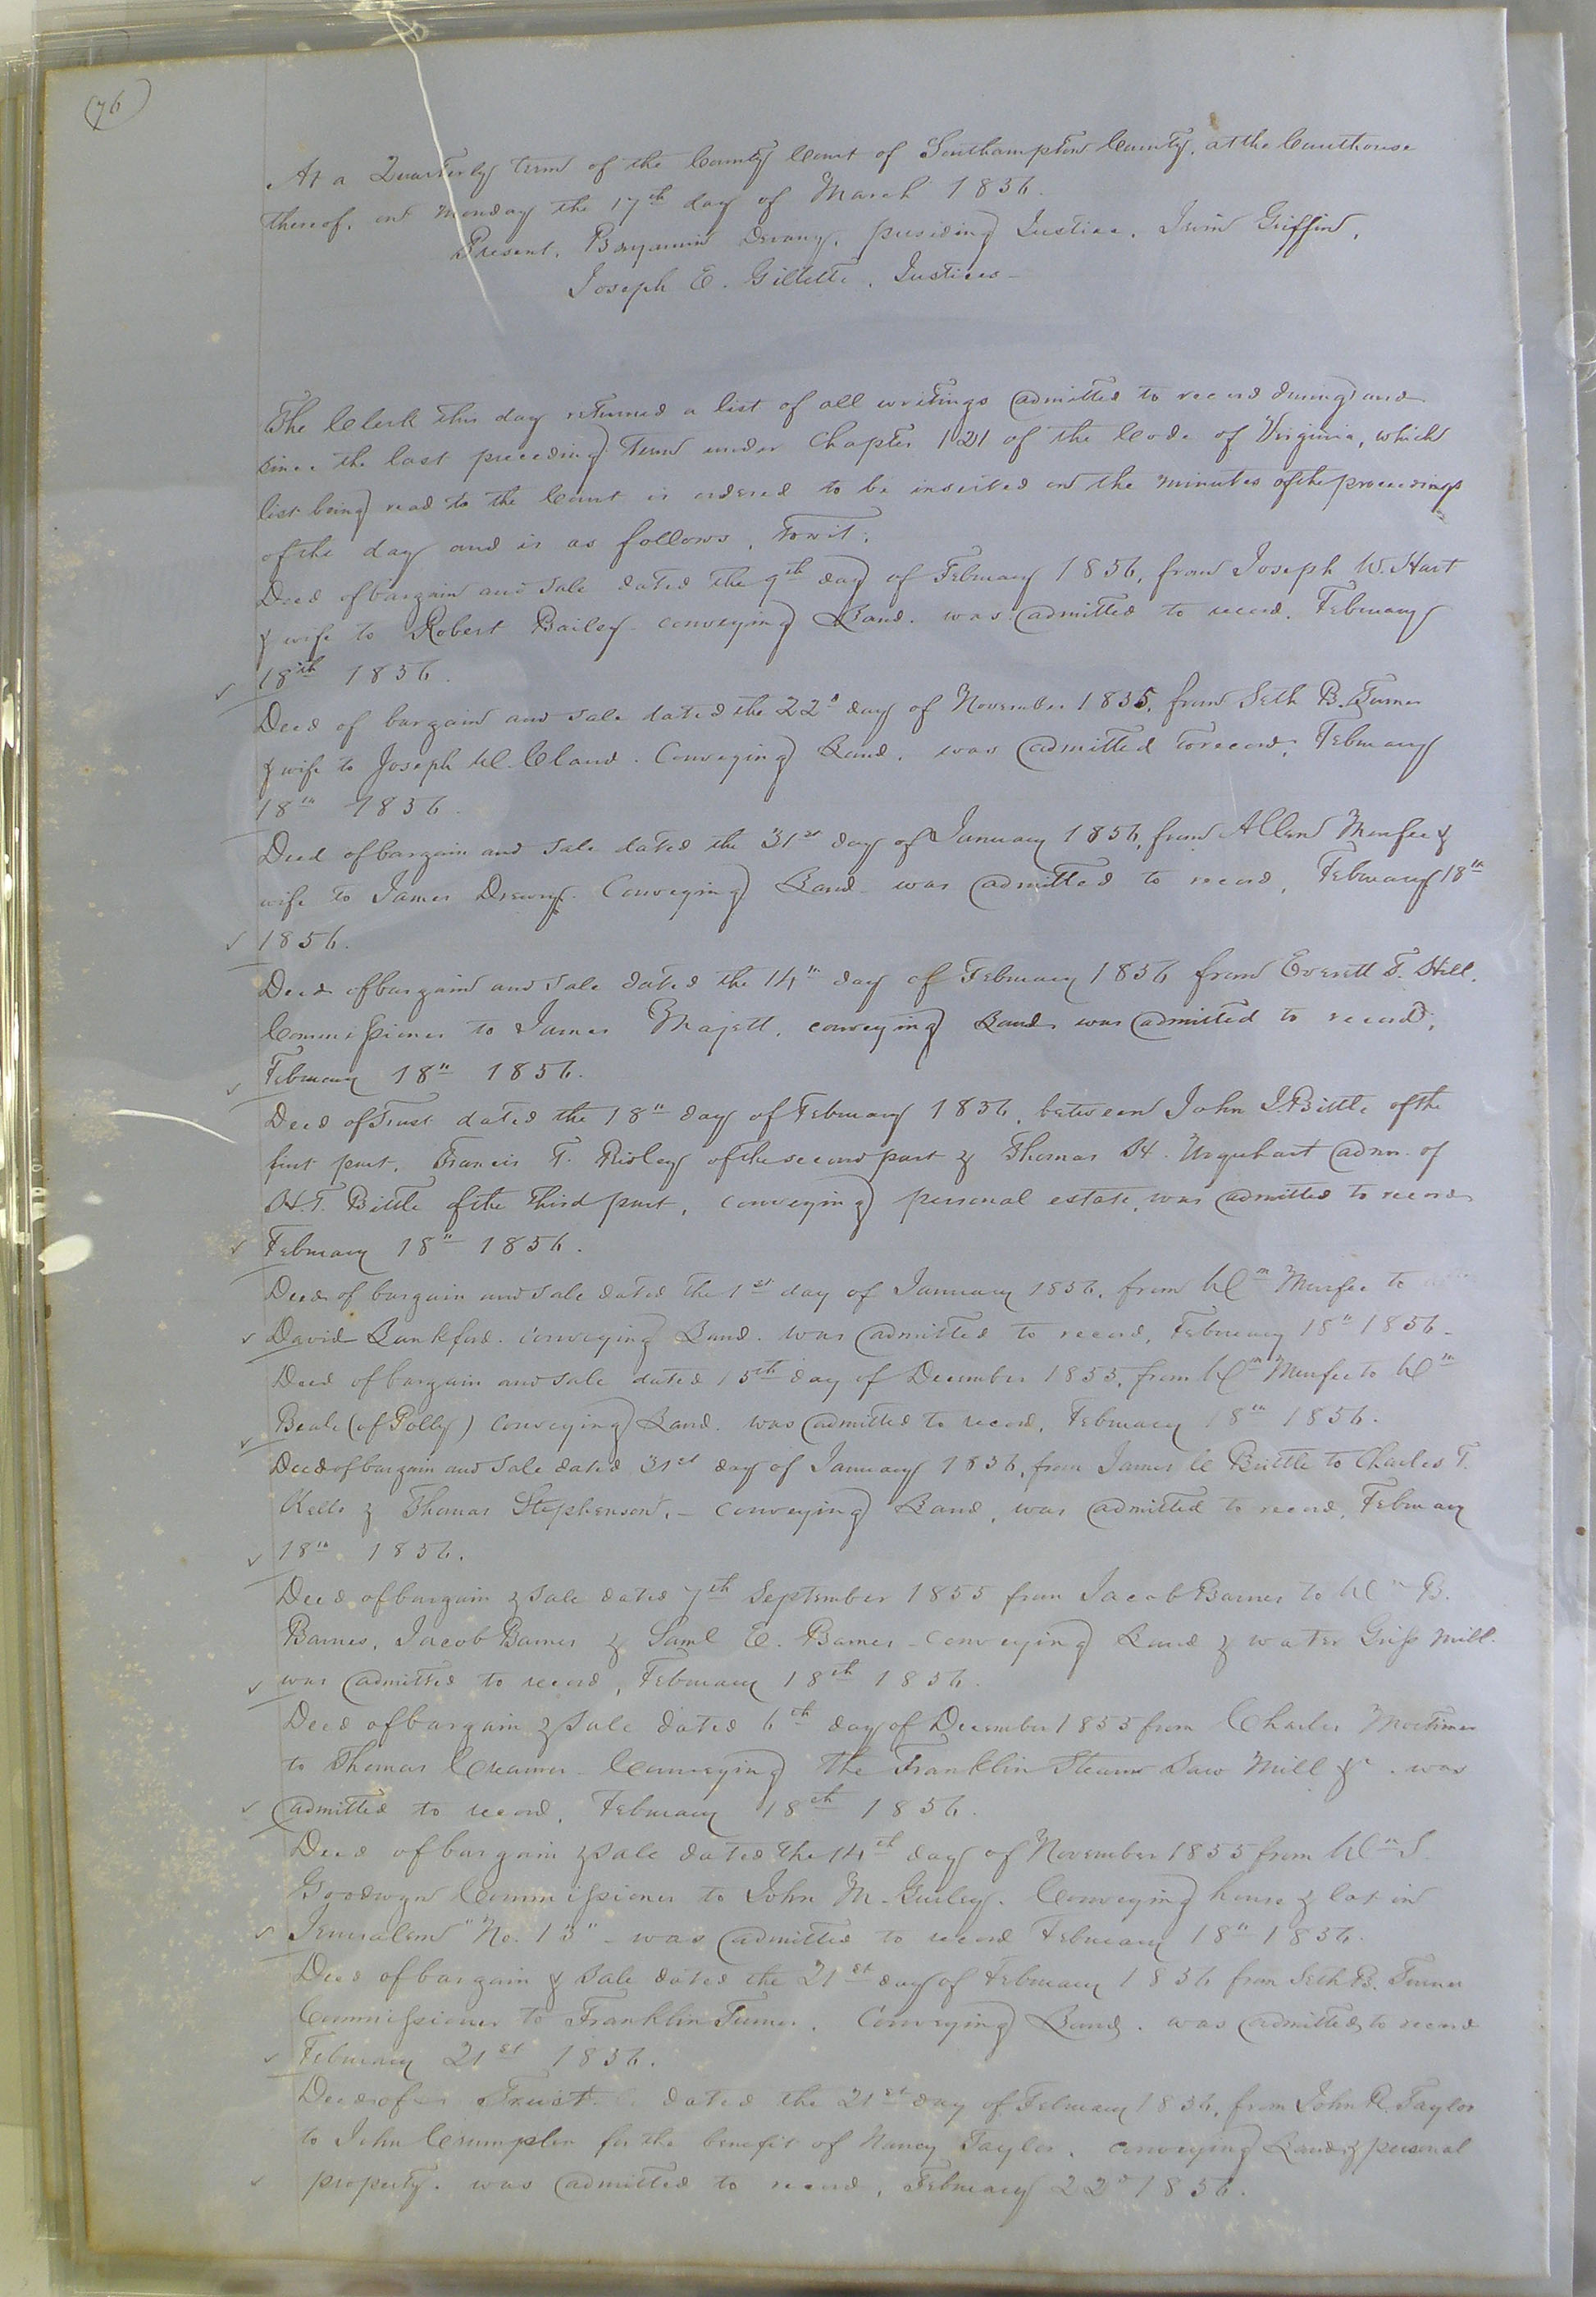 (76)
At a Quarterly term of the County Court of Southampton County, at the Courthouse
thereof, on Monday the 17th day of March 1856.
Present, Benjamin Devany, presiding Justice, Irvin Griffin,
Joseph E. Gillette, Justices—
The Clerk this day returned a list of all writings admitted to record during and
since the last preceeding Term under Chapter 121 of the Code of Virginia, which
list being read to the Court is ordered to be inserted on the minutes of the proceedings
of the day and is as follows, Towit;
Deed of bargain and sale dated the 9th day of February 1856, from Joseph W. Hart
& wife to Robert Bailey conveying Land. was admitted to record. February
18th 1856.
Deed of bargain and sale dated the 22d day of November 1855, from Seth B. Turner
& wife to Joseph W. Claud. Conveying Land. was admitted to record. February
18th 1856.
Deed of bargain and sale dated the 31st day of January 1856, from Allen Murfee &
wife to James Drewry. Conveying Land was admitted to record, February 18th
1856.
Deed of bargain and sale dated the 14th day of February 1856 from Everett T. Hill.
Commissioner to James Majett, conveying Land was admitted to record,
February 18th 1856.
Deed of Trust dated the 18th day of February 1856, between John J. Bittle of the
first part, Francis T. Ridley of the second part & Thomas H. Urquhart admr. of
H.T. Bittle of the third part, conveying personal estate, was admitted to record
February 18th 1856.
Deed of bargain and sale dated the 1st day of January 1856, from Wm Murfee to
David Lankford. conveying Land. was admitted to record, February 18th 1856.
Deed of bargain and sale dated 15th day of December 1855, from Wm Murfee to Wm
Beale (of Polly) conveying Land. was admitted to record, February 18th 1856.
Deed of bargain and sale dated 31st day of January 1856, from James C Brittle to Charles T.
Kello & Thomas Stephenson,— conveying Land, was admitted to record, February
18th 1856.
Deed of bargain & sale dated 7th September 1855 from Jacob Barnes to Wm B.
Barnes, Jacob Barnes & Saml E. Barnes—conveying Land & water Grist Mill.
was admitted to record, February 18th 1856.
Deed of bargain & sale dated 6th day of December 1855 from Charles Mortimer
to Thomas Creamer. Conveying the Franklin Steam Saw Mill &c. was
admitted to record, February 18th 1856.
Deed of bargain & sale dated the 14th day of November 1855 from Wm S.
Goodwyn Commissioner to John M. Gurley. Conveying house & lot in
Jerusalem "No. 13" – was admitted to record February 18th 1856.
Deed of bargain & sale dated the 21st day of February 1856 from Seth B. Turner
Commissioner to Franklin Turner. Conveying Land. was admitted to record
February 21st 1856.
Deed of Trust dated the 21st day of February 1856, from John R. Taylor
to John Crumpler for the benefit of Nancy Taylor. conveying Land & personal
property. was admitted to record, February 22d 1856.